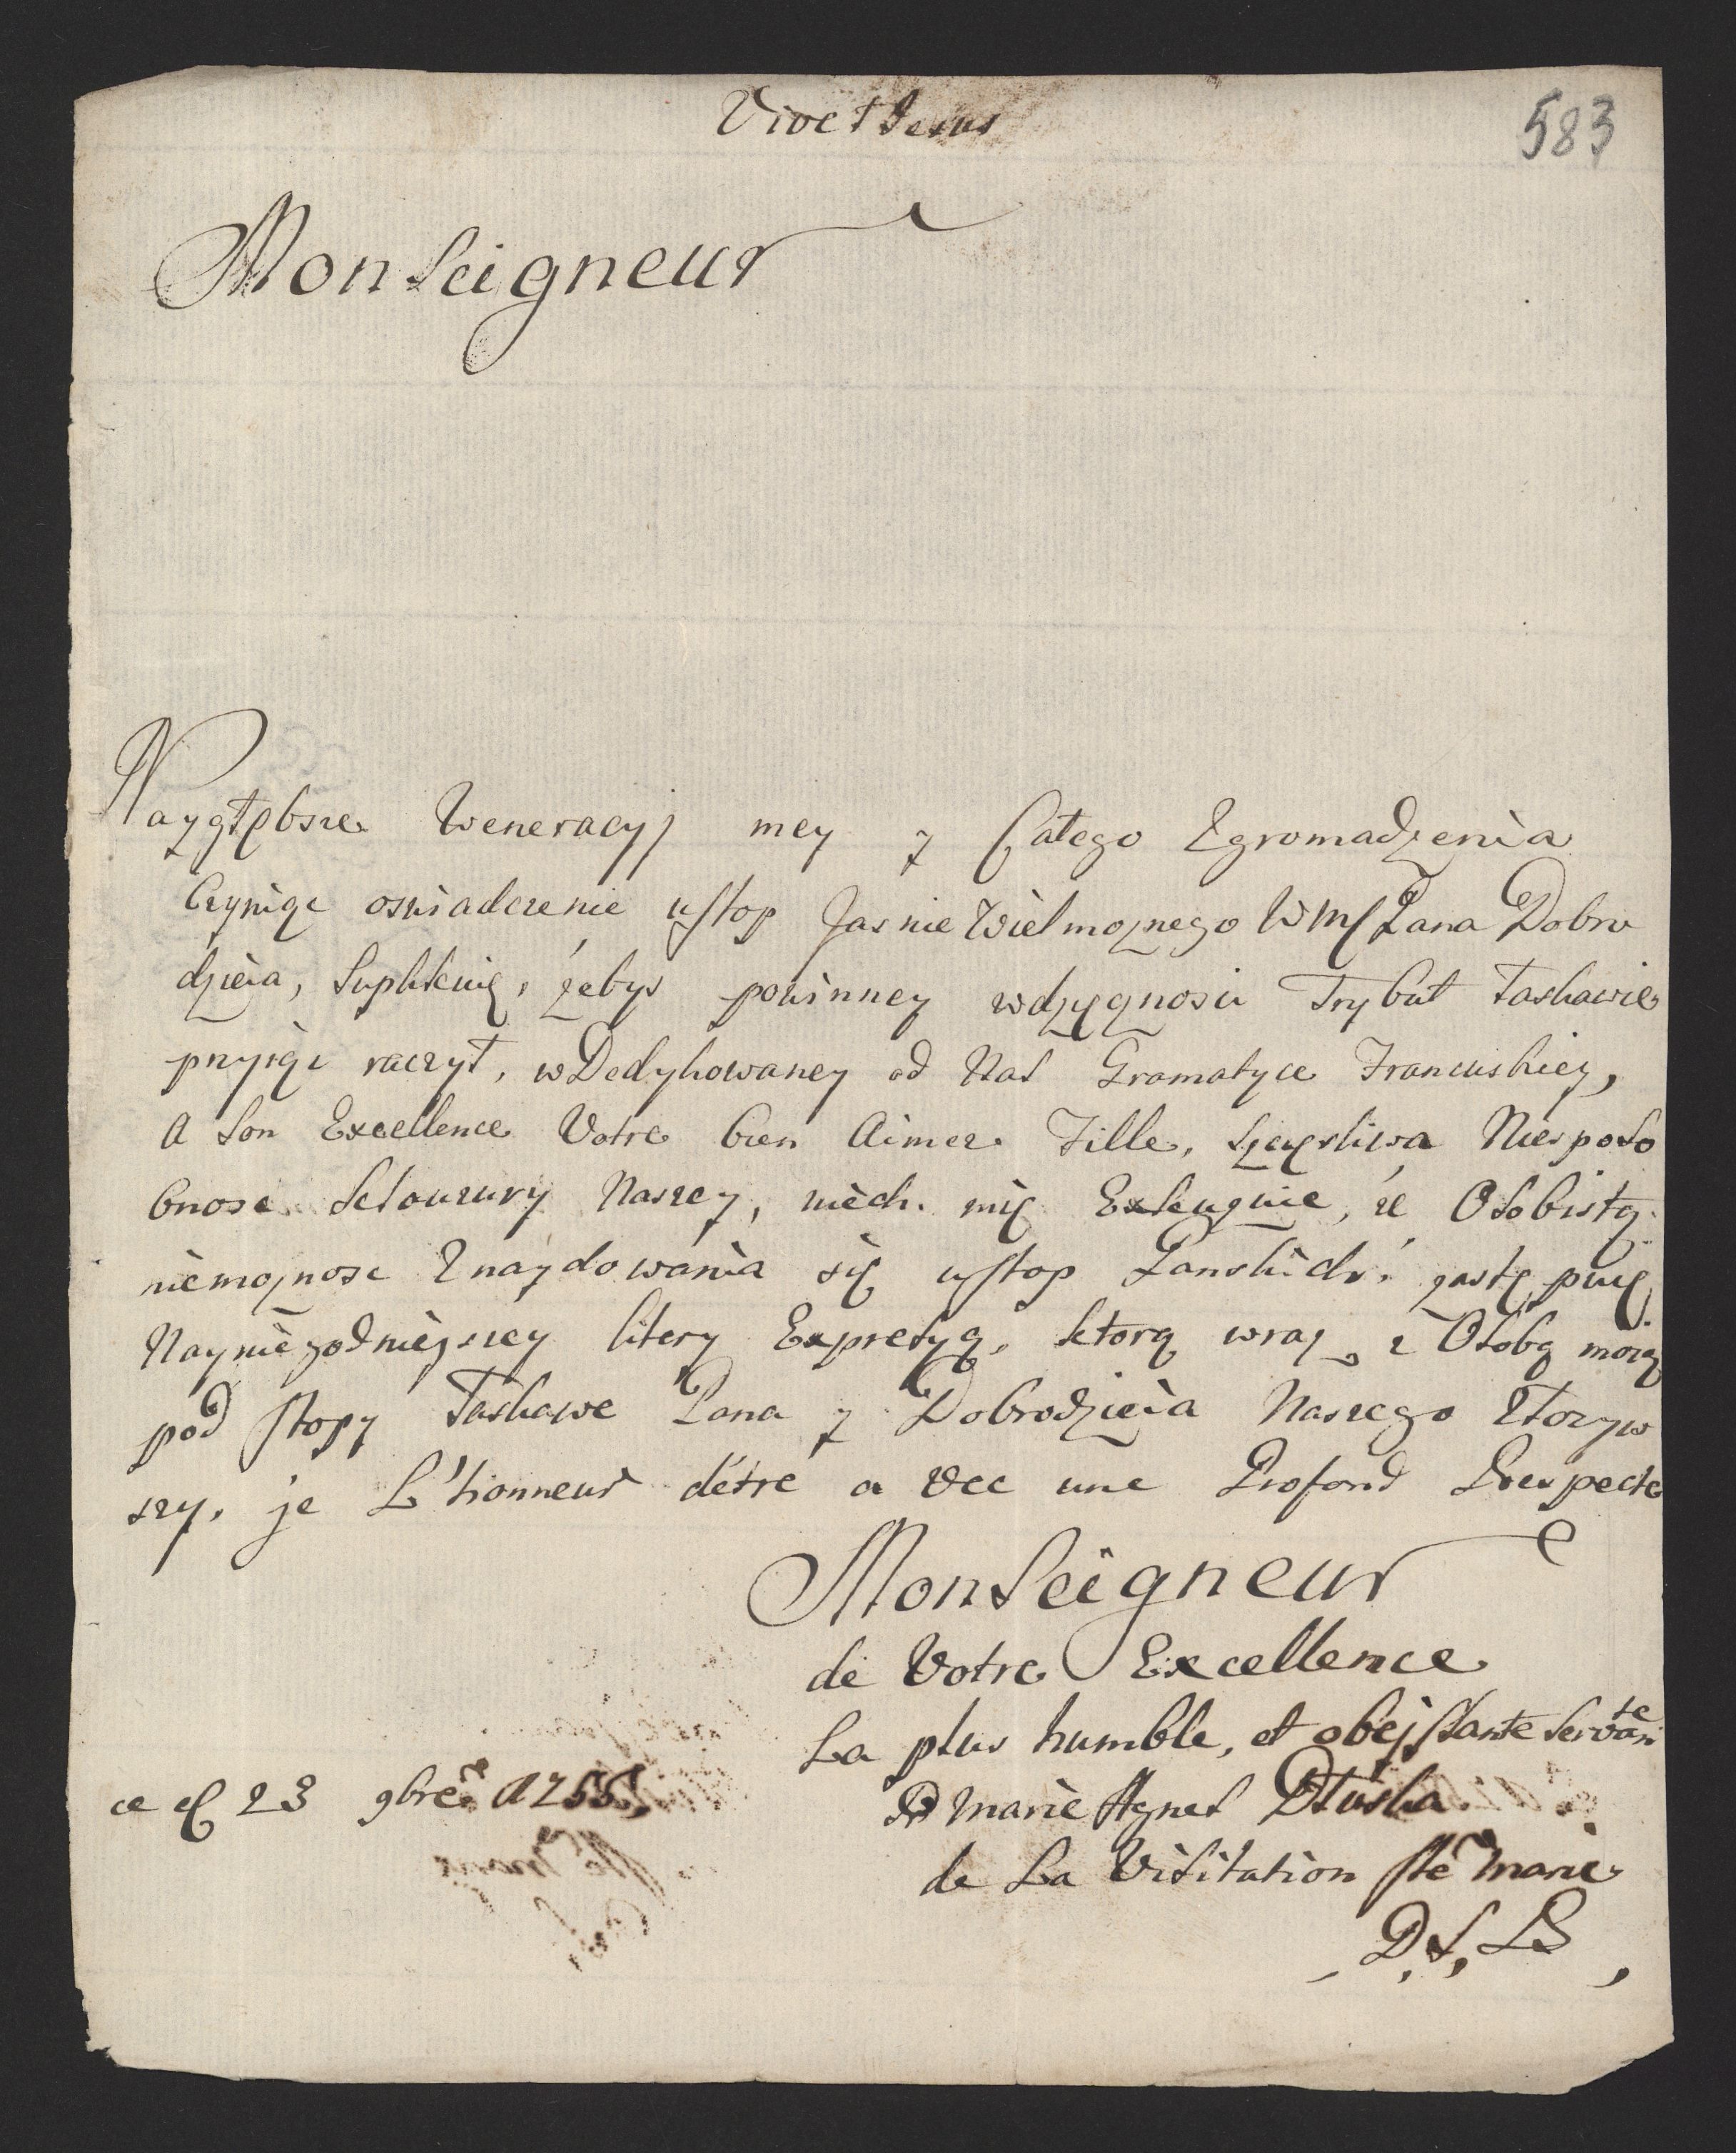 Vive † Jesus
583
Monseigneur
Naygłębsze Weneracyj mey y Całego Zgromadzenia
Czyniąc oswiadczenie u stop Jasnie Wielmoznego WM Pana Dobro
dzieia, Suplikuię, żebys powinney wdzięcznosci Trybut łaskawie
przyiąć raczył, w Dedykowaney od Nas Gramatyce Francuskiey,
A Son Excellence Votre bien Aimez Fille, szczęsliwa Niesposo
bnosc Setouzury Naszey, niech mię Exkuzuie, że Osobistą
niemoznosc Znaydowania się u stop Panskich, zastę puię
Nayniegodnieyszey litery Expresyą, ktorą wraz z Osobą moią
pod stopy łaskawe Pana y Dobrodzieia Naszego złozyw
szy, je L'honneur d'étre a vec une Profond Respecte
Monseigneur
de Votre Excellence
La plus humble, et obejssante Servante
Marie Agnes Dłuska
de La Visitation Ste Marie
D, S, LB,
ce 23 9bre A 1755,